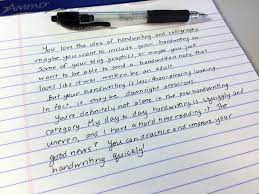 AMPAD
You love the idea of handwriting and calligraphy
maybe you want to include your handwriting on
some of your blog graphics, or maybe you just
want to be able to send a handwritten note that
looks like it was written by an adult.
but your handwriting is less than pleasing looking.
In fact, it may be downright atrocious.
You're definitely not alone in the poor handwriting
category. My day to day handwriting is squiggly and
uneven, and I have a hard time reading it! The
good news? You can practice and improve your
handwriting quickly!